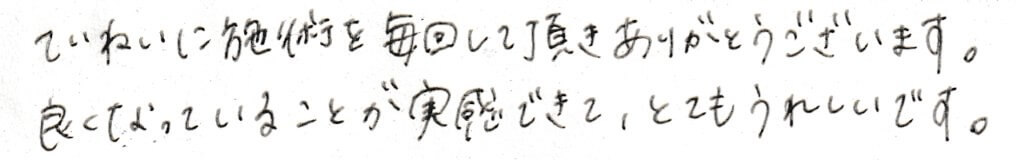 ていねいに施術を毎回して頂きありがとうございます。
良くなっていることが実感できて、とてもうれしいです。